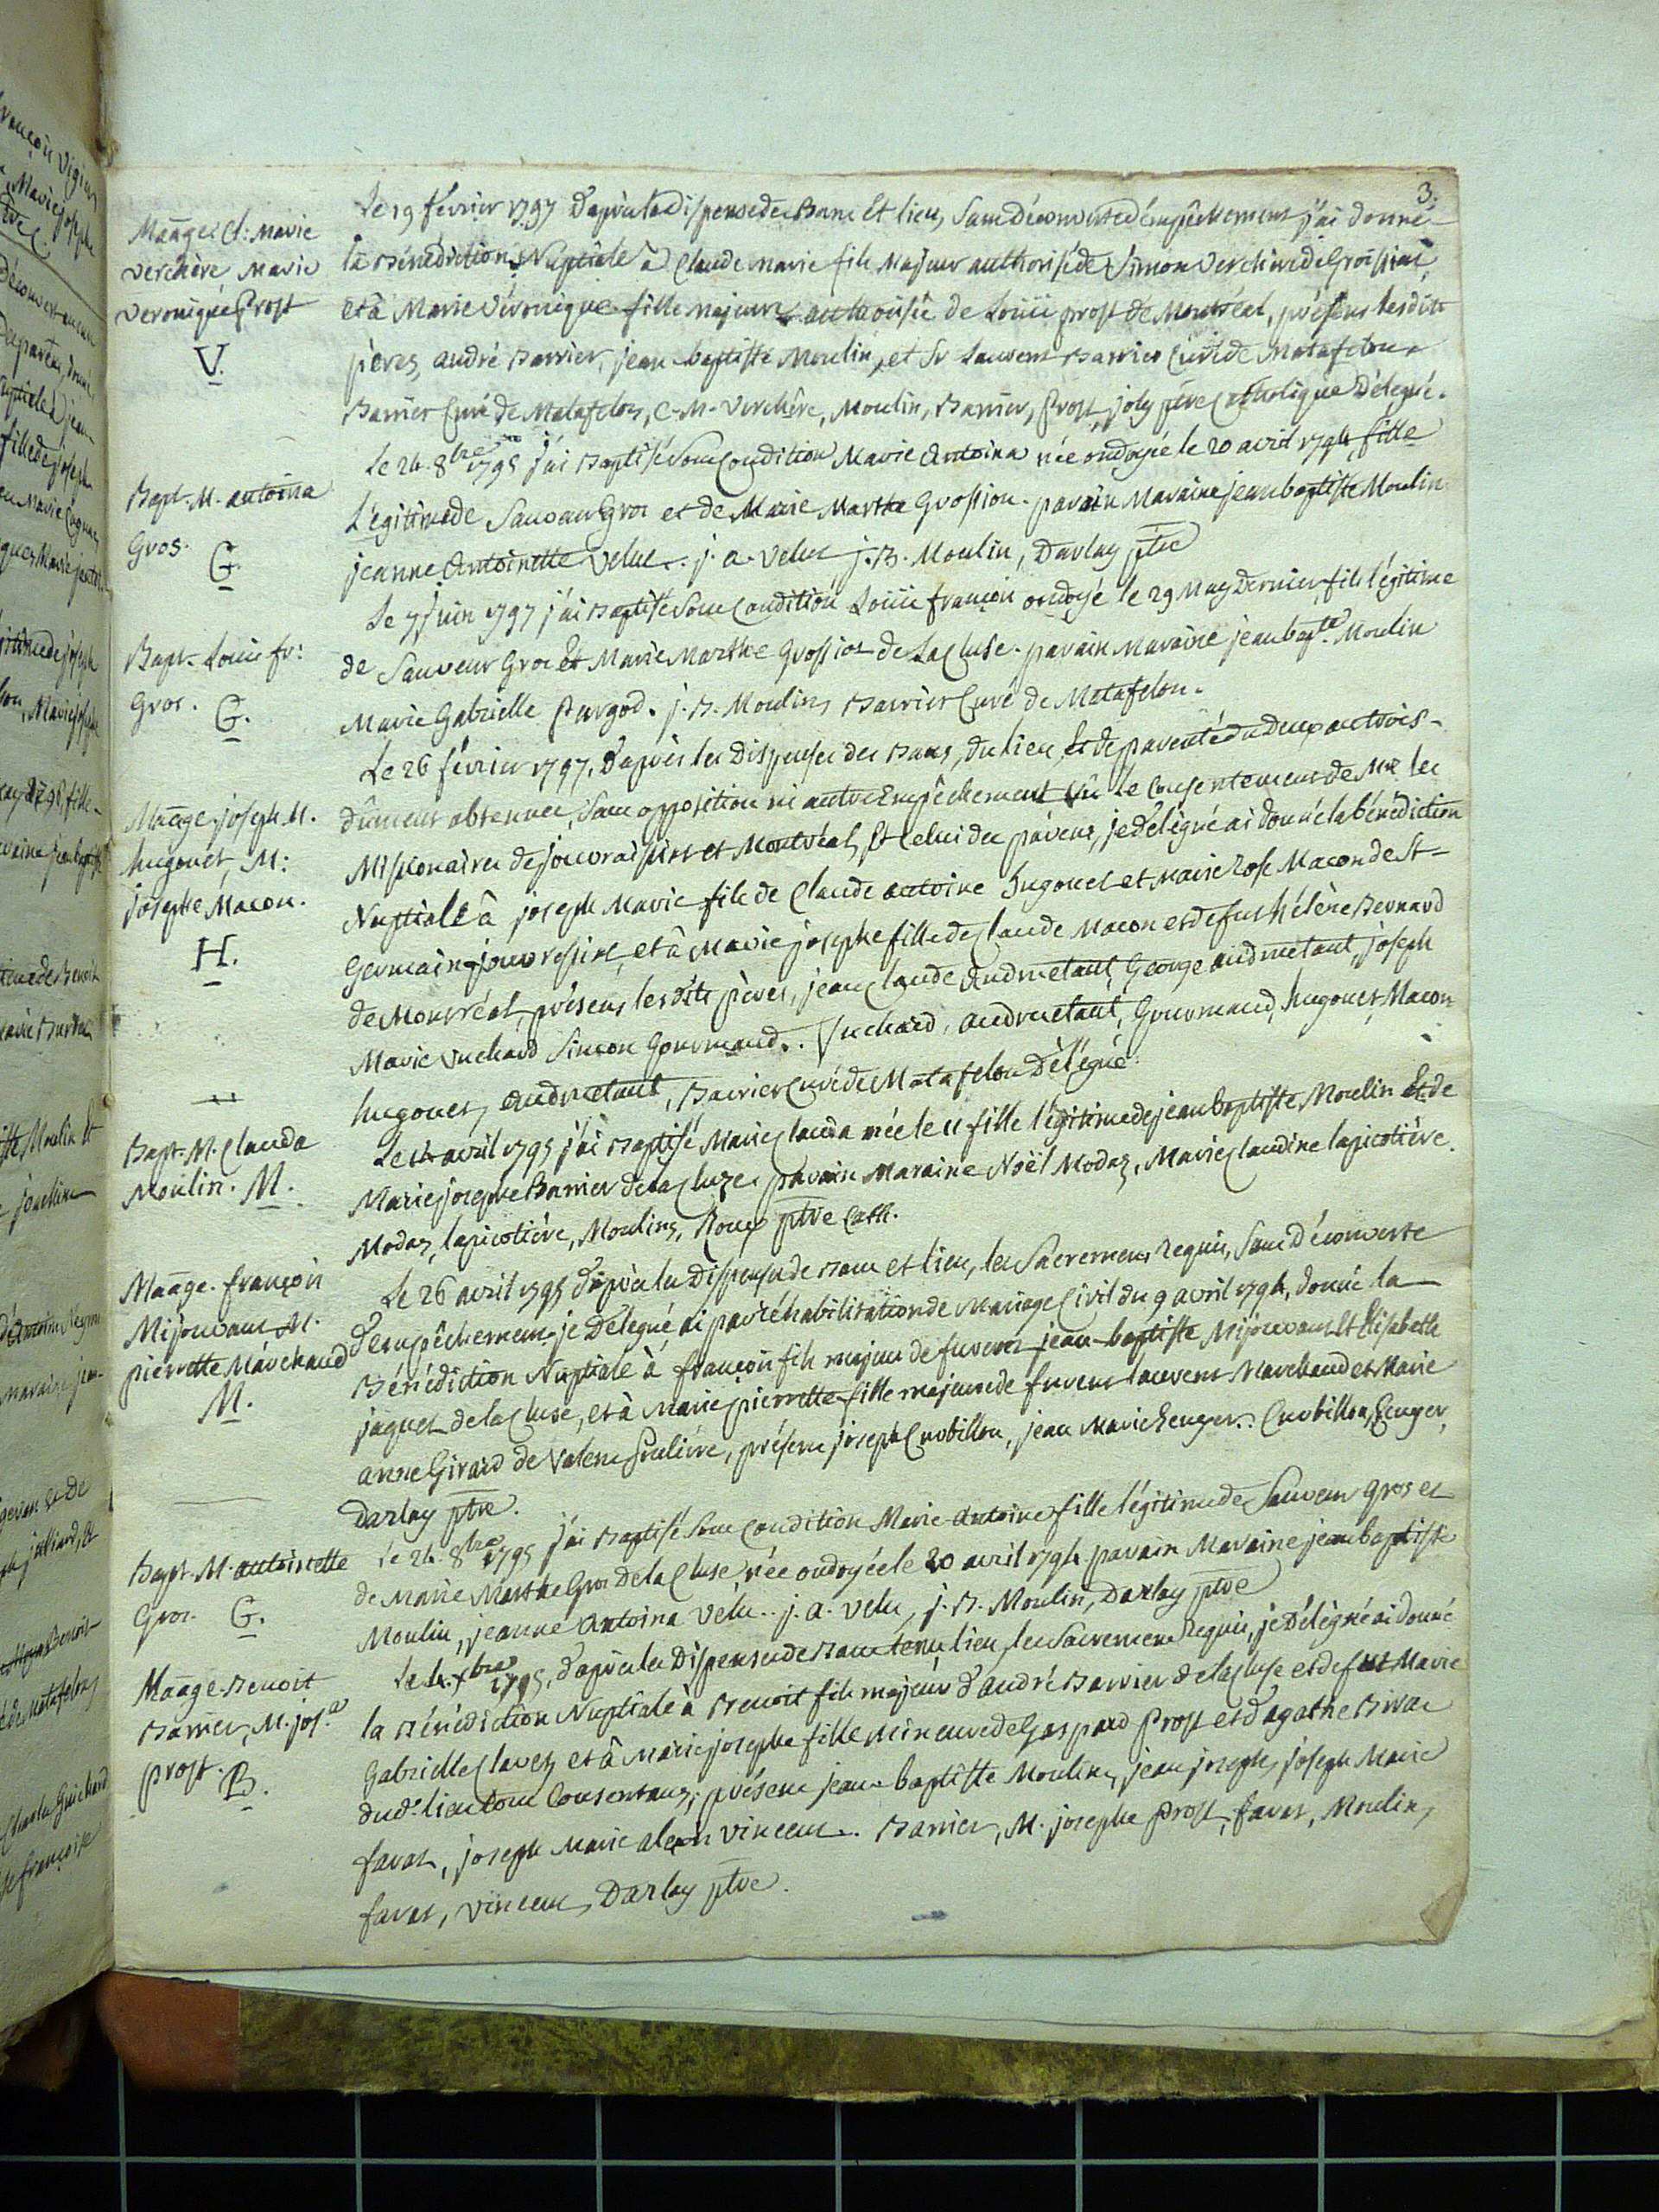 3.
Maãge Cl: Marie
Verchère Marie
Veronique Prost
V.
Le 19 février 1797 d'après la dispense de Banc et lieu, sans découverte d'empêchement j'ai donné
la Bénédiction Nuptiale à Claude Marie fils Majeur authorisé de Simon Verchère de Groissiat,
et à Marie Véronique fille majeure authorisée de Louis prost de Montréal, présens lesdits
pères, andré Barrier, jean-baptiste Moulin, et Sr Laurent Barrier Curé de Matafelon.
Barrier Curé de Matafelon, C-M-Verchère, Moulin, Barrier, Prost, joly père Catholique Délegué.
Bapt. M. antoina
Gros.
G.
Le 24. 8bre 1795 j'ai Baptisé Sous Condition Marie Antoina née ondoyée le 20 avril 1794, fille
Légitime de Sauveur Gros et de Marie Marthe Grossiou. parain Maraine jean baptiste Moulin
jeanne Antoinette Velut. j. a. Velut j. B. Moulin, Darlay ptre
Bapt. Louis fr:
Gros.
G.
Le 7 juin 1797 j'ai Baptisé Sous Condition Louis françois ondoyé le 29 May Dernier, fils légitime
de Sauveur Gros Et Marie Marthe Grossiot de La Cluse. parain Maraine jean bapte. Moulin
Marie Gabrielle Purgod. j. B. Moulin, Barrier Curé de Matafelon.
Maãge joseph M.
hugonet, M:
josephe Macon.
H.
Le 26 février 1797. D'après les Dispenses des Bans, du lieu, Et de parenté du Deux au trois-
dûment obtenues, Sans opposition ni autre Empêchement Vû le Consentement de Mrs les
Missionaires de jouvraissiat et Montréal, Et Celui des parens, je délégué ai donné la bénédiction
Nuptiale à joseph Marie fils de Claude antoine hugonet et Marie Rose Macon de St-
Germain-jouvressiat, et à Marie josephe fille de Claude Macon et de fut hélène Bernard
de Montréal, présens lesdits pères, jean Claude Andruetant, George andruetant, joseph
Marie Vuchard Simon Gourmand. Vuchard, andruetant, Gourmand, hugonet, Macon
hugonet, andruetant, Barrier Curé de Matafelon Délégué.
Bapt. M. Clauda
Moulin. M.
Le 14 avril 1795 j'ai Baptisé Marie Clauda née le 11 fille légitime de jean baptiste Moulin Et de
Marie josephe Barrier de la Cluze. parain Maraine Noël Modas, Marie Claudine lapicotière.
Modas, lapicotière, Moulin, Roux ptre Cath.
Maãge. françois
Mijouvant M.
pierrette Marchand
M.
Le 26 avril 1795 d'après les Dispenses de Banc et lieu, les Sacremens Requis, Sans Découverte
d'empêchement je Délégué ai par réhabilitation de Mariage Civil du 9 avril 1794, donné la
Bénédiction Nuptiale à françois fils majeur de jean-baptiste Mijouvant Et Elisabeth
jaquet de la Cluse, et à Marie pierrette fille majeure de laurent Marchand et Marie
anne Girard de , présens joseph Crobillon, jean Marie Renger. Crobillon, Renger,
Darlay ptre.
Bapt. M. antoinette
Gros. G.
Le 24. 8bre 1795 j'ai Baptisé Sous Condition Marie Antoine fille légitime de Sauveur Gros et
de Marie Marthe Gros de la Cluse née ondoyée le 20 avril 1794 parain Maraine jean baptiste
Moulin, jeanne Antoina Velu.. j. a. Velu, j. B. Moulin, Darlay ptre
Maãge Benoit
Barrier, M. jose
prost.
B.
Le 4. xbre 1795, d'après les Dispenses de Banc lieu, les Sacremens Requis, je Délégué ai donné
la Bénédiction Nuptiale à Benoit fils majeur d'andré Barrier de la Cluse et de fut Marie
Gabrielle Clavez et à Marie josephe fille Mineure de Gaspard Prost et d'agathe
dud. lieu tous Consentans; présens jean-baptiste Moulin, jean joseph, joseph Marie
favas, joseph Marie alexis Vincent. Barrier, M. josephe Prost, favas, Moulin,
favas, Vincent, Darlay ptre.